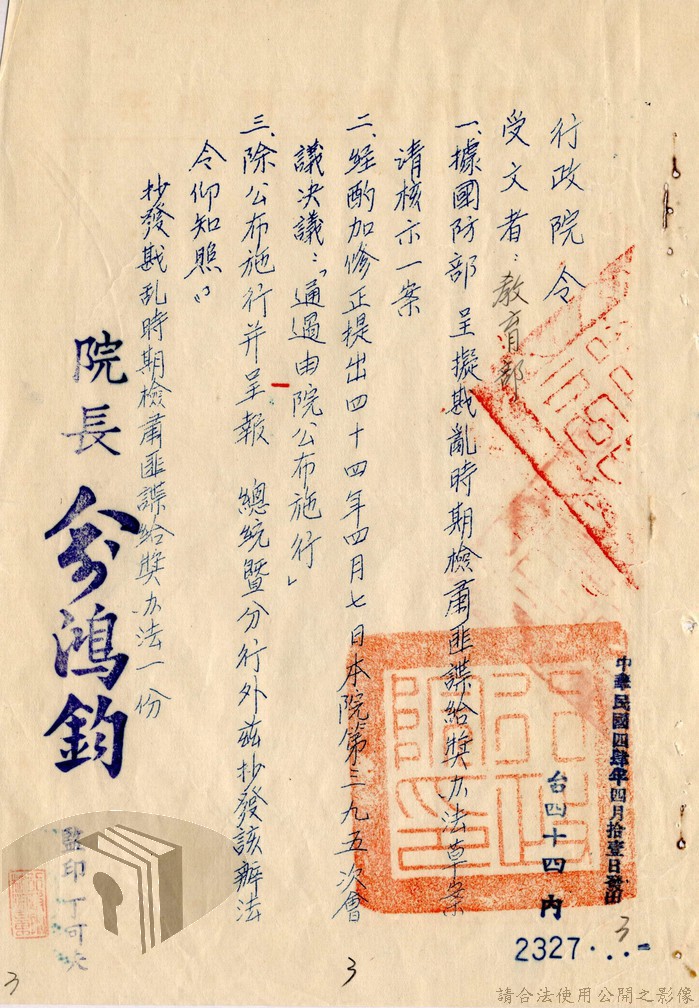 行政院令
受文者：教育部
一、據國防部　呈擬戡亂時期檢肅匪諜給獎办法草案
請核示一案
二、經酌加修正提出四十四年四月七日本院第三九五次會
議决議：「通過由院公布施行」
三、除公布施行并呈報　總統暨分行外兹抄發該辦法
令仰知照。
抄發戡乱時期檢肅匪諜給獎办法一份
院長 俞鴻鈞
監印
中華民國四肆年四月拾壹日發出
台四十四內
2327
行政院印
3
3
3
請合法使用公開之影像